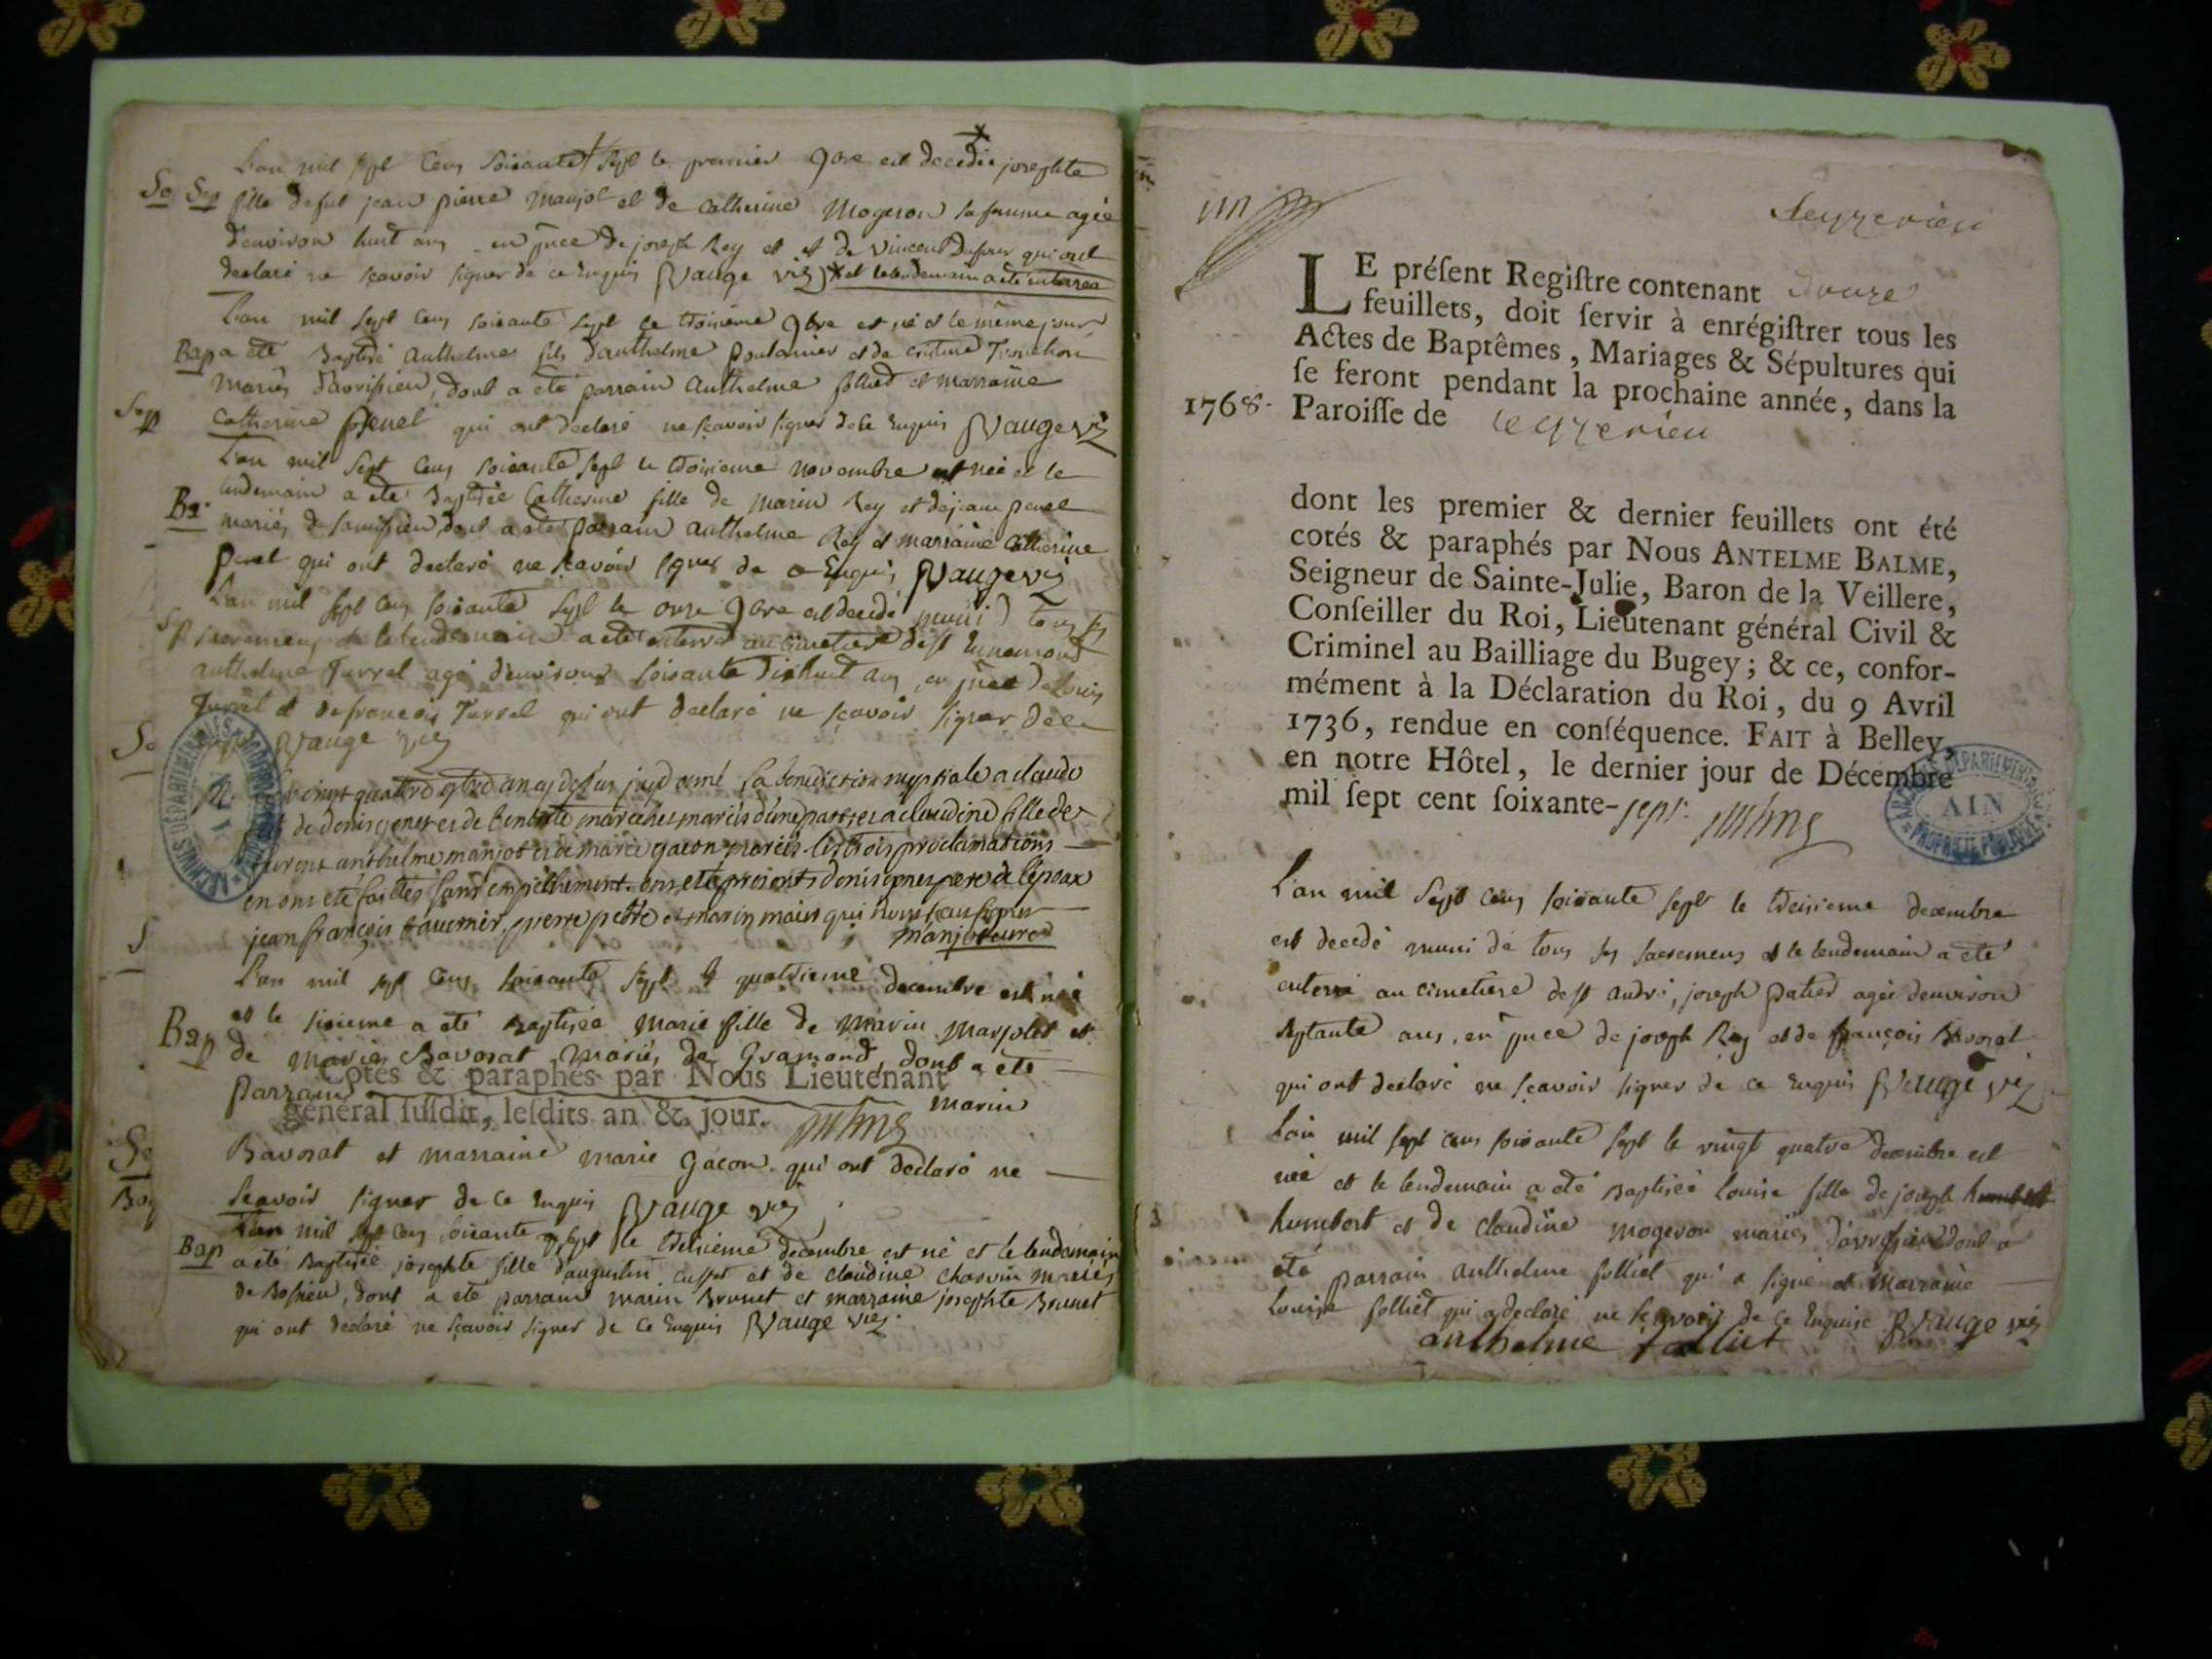 L'an mil sept cens soixante sept le premier 9bre est decedée josephte
So Sep fille de fut jean pierre manjot et de catherine Mogeron sa femme agée
d'environ huit ans en pnce de joseph Rey et et de vincent Dufour qui ont
declaré ne sçavoir signer de ce Enquis Vauge viz * et lelendemain a eté enterrée
L'an mil sept cens soixante sept le troisieme 9bre est né et le même jour
Bap a eté Baptisé anthelme fils d'anthelme et de
mariés d'avrissieu, dont a eté parrain anthelme folliet et marraine
Sep
catherine penet qui ont declaré ne sçavoir signer de ce Enquis Vauge viz
L'an mil sept cens soixante sept le troisieme novembre est née et le
lendemain a eté Baptisée Catherine fille de marin Rey et de jeanne penet
Ba mariés de dont a eté parrain anthelme Rey et marraine catherine
penet qui ont declaré ne sçavoir signer de ce Enquis Vauge viz
L'an mil sept cens soixante sept le onze 9bre est decedé muni tous ses
Sp sacremens et le lendemain a eté enterré au cimetiere de st
anthelme Turrel agé d'environ soixante dixhuit ans, en pnce de
Turrel et de françois Turrel qui ont declaré ne sçavoir signer de ce
So Vauge viz
vingt quatre 9bre an cy desus jay donné la benediction nuptiale a claude
de denis genet et de mariés d'une part, et a claudine fille de
anthelme manjot et de marie gacon mariés. les trois proclamations
en ont eté faittes sans empechement. ont eté presents denis genet pere de l'epoux
jean françois tavernier, pierre petit et marin qui n'ont sçu signer
S manjot curé
L'an mil sept cens soixante sept le quatrieme decembre est née
et le sixieme a eté Baptisée marie fille de marin marjolet et
Bap de marie Bavosat mariés de Gramond, dont a eté
Cotés & paraphés par Nous Lieutenant
parrain marin
général ſuſdit, leſdits an & jour.
So Bavosat et marraine marie gacon. qui ont declaré ne
sçavoir signer de ce Enquis Vauge viz
L'an mil sept cens soixante sept le treisieme decembre est né et le lendemain
Bap a eté Baptisée josephte fille d'augustin cusset et de claudine charvin mariés
de Bossieu, dont a eté parrain marin Brunet et marraine josephte Brunet
qui ont declaré ne sçavoir signer de ce Enquis Vauge viz.
Leyzerieu
LE préſent Regiſtre contenant douze
feuillets, doit ſervir à enrégiſtrer tous les
Actes de Baptêmes, Mariages & Sépultures qui
ſe feront pendant la prochaine année, dans la
1768. Paroiſſe de leyzerieu
dont les premier & dernier feuillets ont été
cotés & paraphés par Nous ANTELME BALME,
Seigneur de Sainte-Julie, Baron de la Veillere,
Conſeiller du Roi, Lieutenant général Civil &
Criminel au Bailliage du Bugey; & ce, confor-
mément à la Déclaration du Roi, du 9 Avril
1736, rendue en conſéquence. FAIT à Belley,
en notre Hôtel, le dernier jour de Décembre
mil ſept cent ſoixante-sept.
ARCHIVES DEPARTEMENTALES AIN PROPRIÉTÉ PUBLIQUE
L'an mil sept cens soixante sept le treisieme decembre
est decedé muni de tous ses sacremens et le lendemain a eté
enterré au cimetiere de st andré, joseph patier agée denviron
septante ans, en pnce de joseph Rey et de françois Bavosat
qui ont declaré ne sçavoir signer de ce Enquis Vauge viz
L'an mil sept cens soixante sept le vingt quatre decembre est
née et le lendemain a eté Baptisée Louise fille de joseph humbert
humbert et de claudine mogeron mariés d'avrissieu dont a
eté parrain anthelme folliet qui a signé et marraine
Louise folliet qui a declaré ne sçavoir de ce Enquise Vauge viz
anthelme folliet